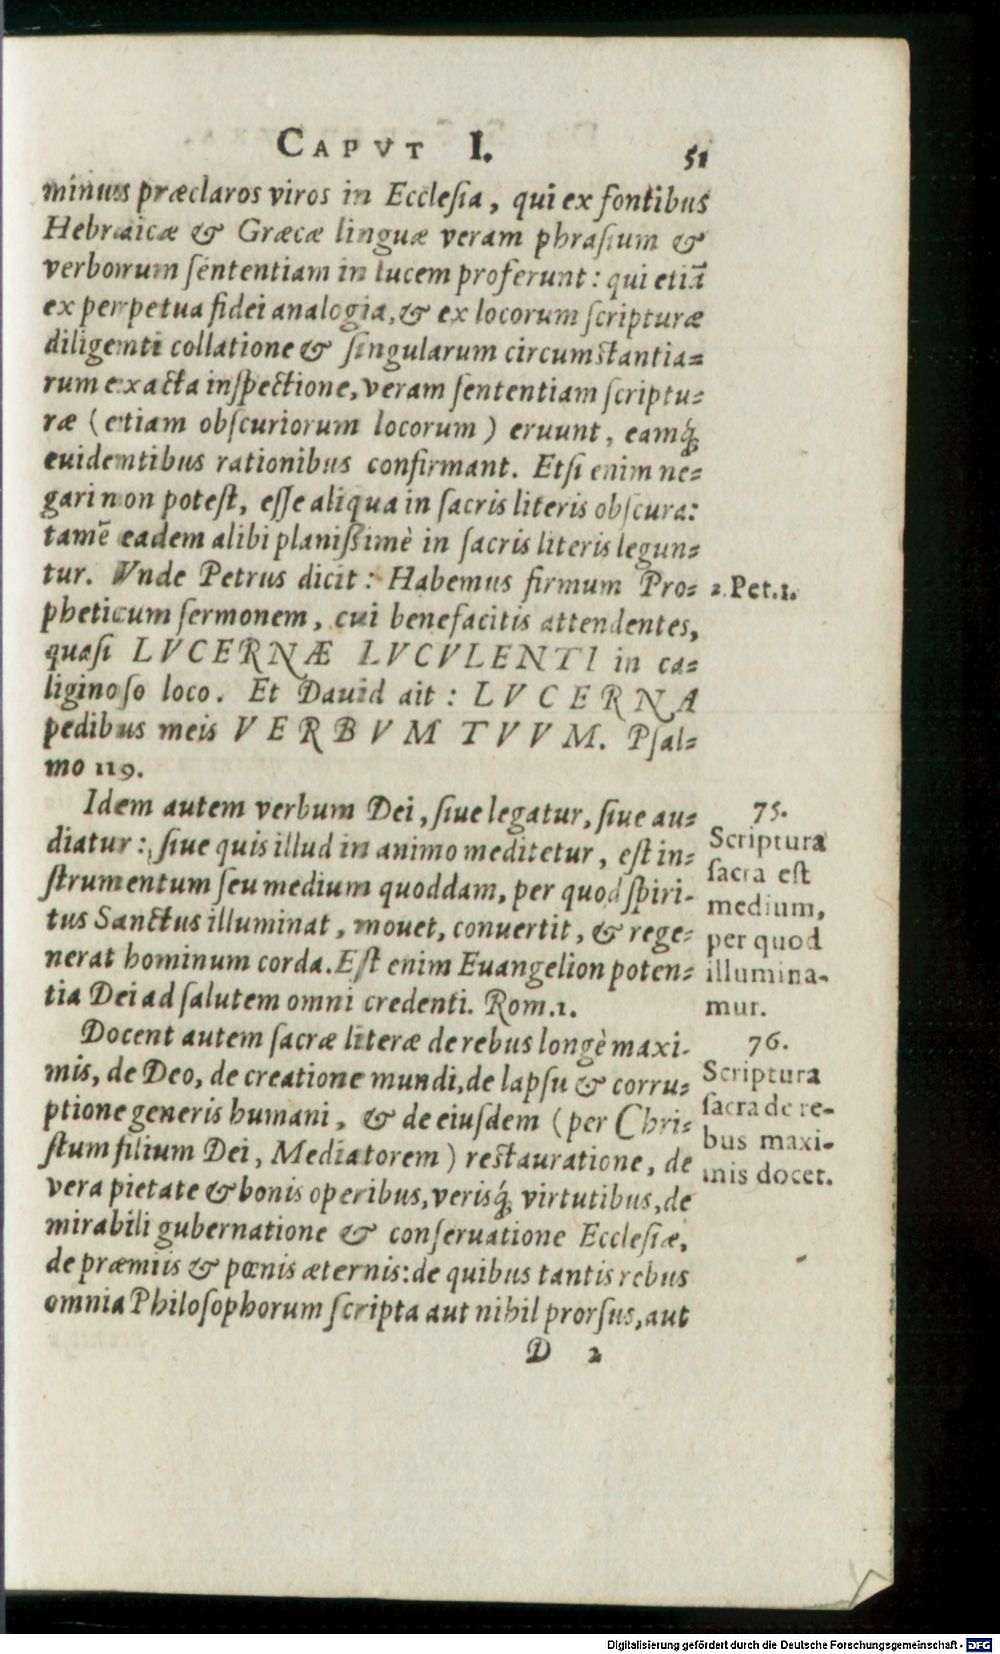 CAPVT I. 51
minus præclaros viros in Ecclesia, qui ex fontibus
Hebraicæ & Græcæ linguæ veram phrasium &
verborum sententiam in lucem proferunt: qui etiā
ex perpetua fidei analogia, & ex locorum scripturæ
diligenti collatione & singularum circumstantia=
rum exacta inspectione, veram sententiam scriptu=
ræ (etiam obscuriorum locorum) eruunt, eamq́;
euidentibus rationibus confirmant. Etsi enim ne=
gari non potest, esse aliqua in sacris literis obscura:
tamē eadem alibi planißimè in sacris literis legun=
tur. Vnde Petrus dicit: Habemus firmum Pro=
2. Pet. 1.
pheticum sermonem, cui benefacitis attendentes,
quasi LVCERNÆ LVCVLENTI in ca=
liginoso loco. Et Dauid ait: LVCERNA
pedibus meis VERBVM TVVM. Psal=
mo 119.
Idem autem verbum Dei, siue legatur, siue au=
diatur: siue quis illud in animo meditetur, est in=
strumentum seu medium quoddam, per quod spiri-
tus Sanctus illuminat, mouet, conuertit, & rege=
nerat hominum corda. Est enim Euangelion poten=
tia Dei ad salutem omni credenti. Rom. 1.
75.
Scriptura
sacra est
medium,
per quod
illumina-
mur.
Docent autem sacræ literæ de rebus longè maxi-
mis, de Deo, de creatione mundi, de lapsu & corru=
ptione generis humani, & de eiusdem (per Chri=
stum filium Dei, Mediatorem) restauratione, de
vera pietate & bonis operibus, verisq́; virtutibus, de
mirabili gubernatione & conseruatione Ecclesiæ,
de præmiis & pœnis æternis: de quibus tantis rebus
omnia Philosophorum scripta aut nihil prorsus, aut
76.
Scriptura
sacra de re-
bus maxi-
mis docet.
D 2
Digitalisierung gefördert durch die Deutsche Forschungsgemeinschaft - DFG